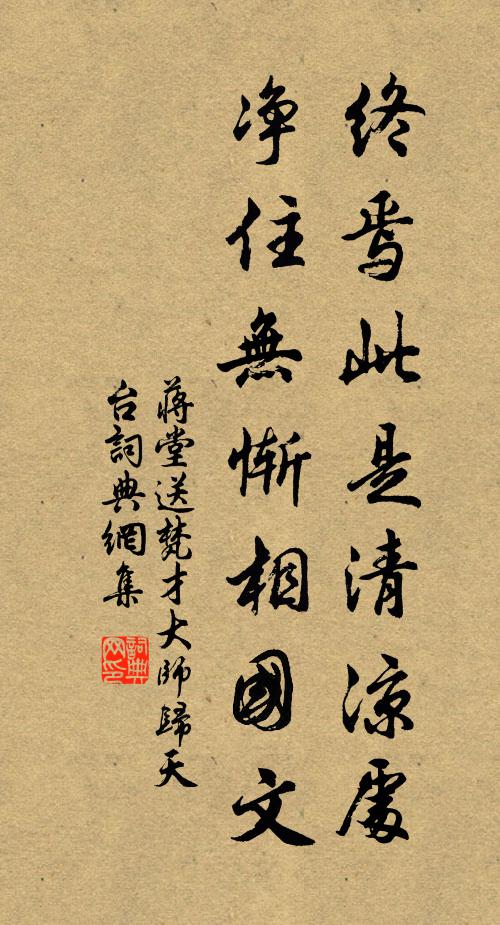 终焉此是清凉處
净住無慚相國文
蔣堂送梵才大師歸天
台詞典網集
詞典
网印